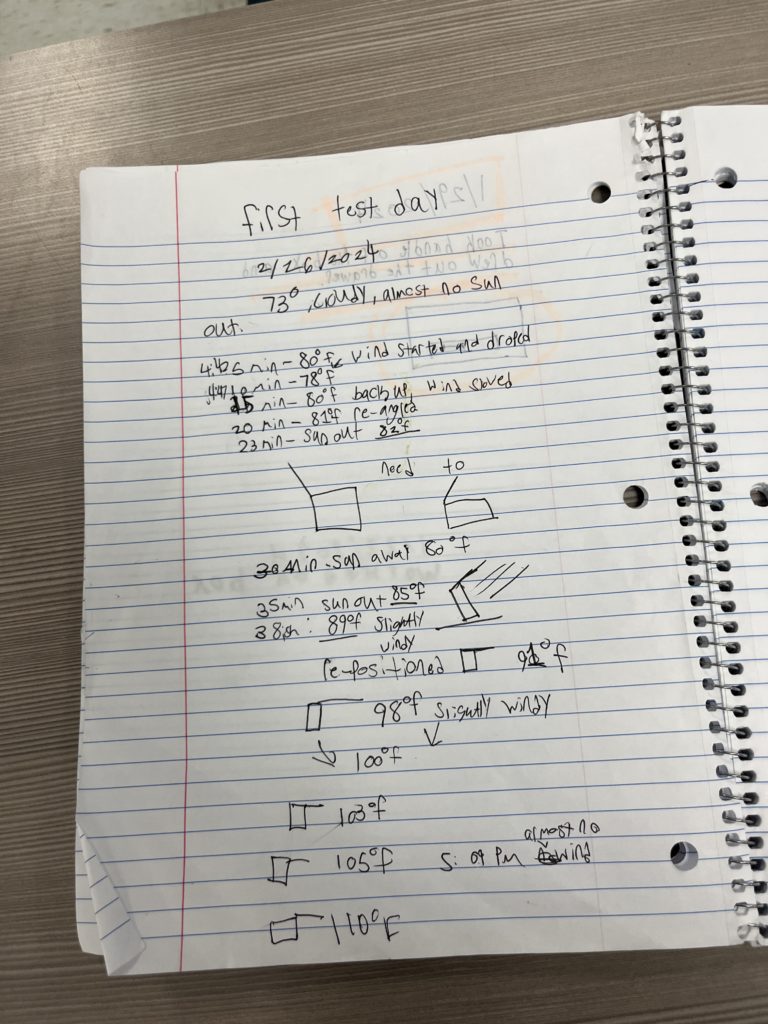 first test day
2/26/2024
73°, cloudy, almost no sun
out.
5 min - 80°f wind started and droped
10 min - 78°f
15 min - 80°f back up, wind slowed
20 min - 81°f re-angled
23 min - sun out 82°f
need to
30 min - sun away 80°f
35 min sun out 85°f
38 : 89°f slightly
windy
re-positioned 91°f
98°f slightly windy
100°f
103°f
almost no
105°f 5:09 PM wind
110°F